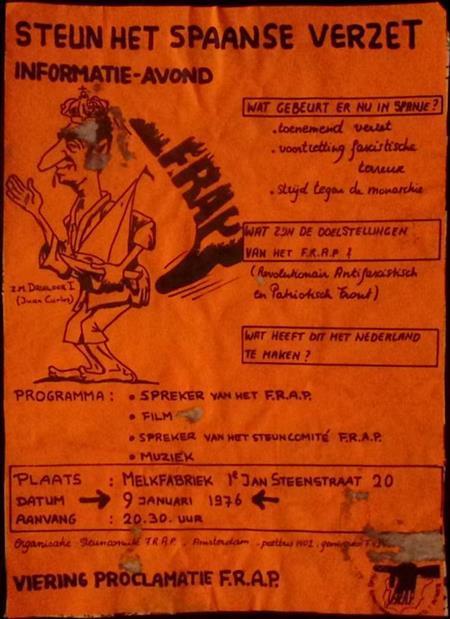 STEUN HET SPAANSE VERZET
INFORMATIE-AVOND
WAT GEBEURT ER NU IN SPANJE?
• toenemend verzet
• voortzetting fascistische
terreur
• strijd tegen de monarchie
F.R.A.P.
WAT ZIJN DE DOELSTELLINGEN
VAN HET F.R.A.P?
(Revolutionair Antifascistisch
en Patriotisch Front)
Z.M.
(Juan Carlos)
WAT HEEFT DIT MET NEDERLAND
TE MAKEN?
PROGRAMMA: • SPREKER VAN HET F.R.A.P.
• FILM
• SPREKER VAN HET STEUNCOMITÉ F.R.A.P.
• MUZIEK
PLAATS : MELKFABRIEK 1e JAN STEENSTRAAT 20
DATUM → 9 JANUARI 1976 ←
AANVANG : 20.30 UUR
Organisatie Steuncomité F.R.A.P. Amsterdam
VIERING PROCLAMATIE F.R.A.P.